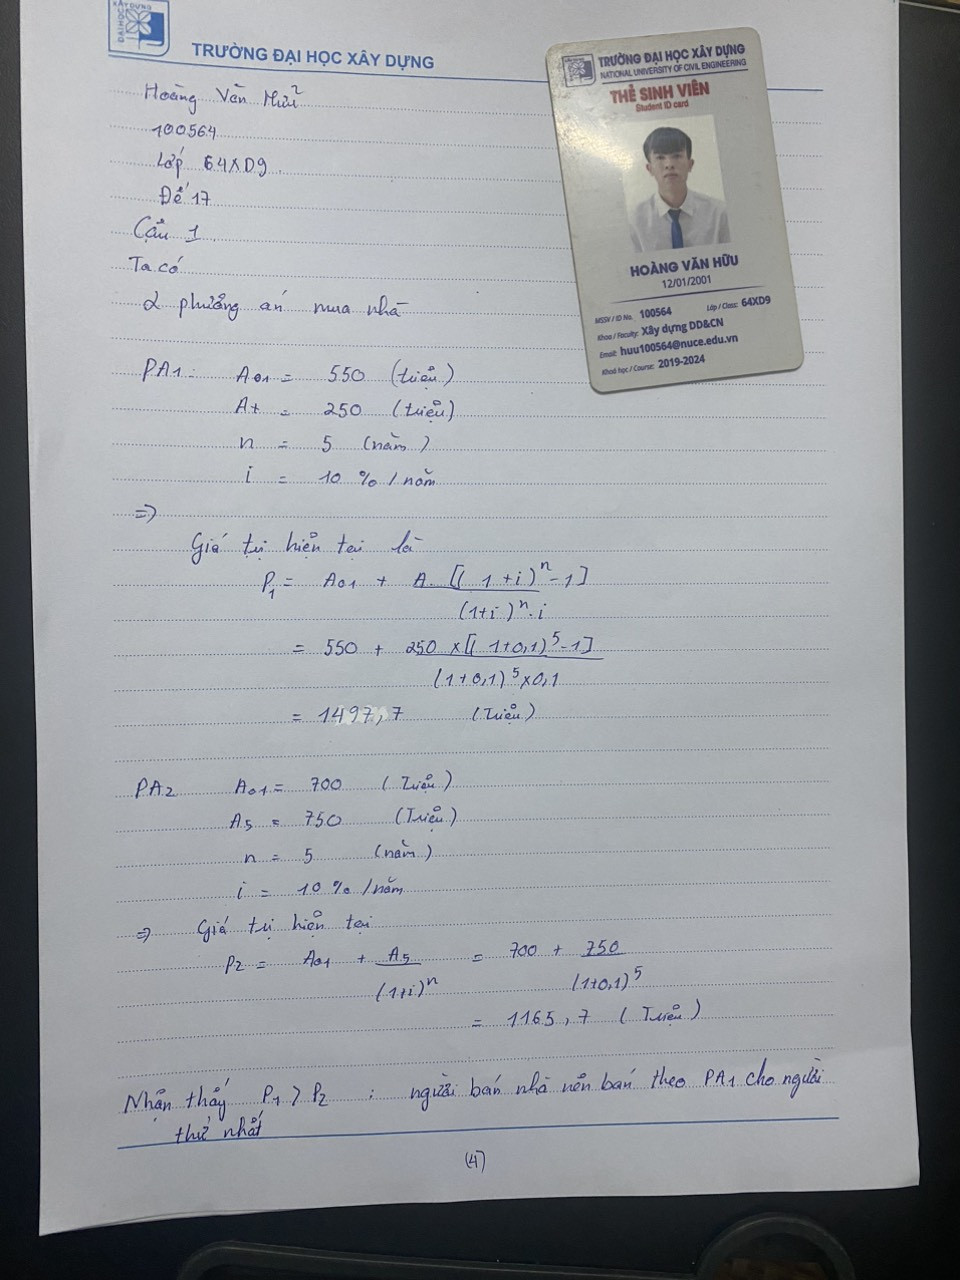 XÂY DỰNG
ĐẠI HỌC
TRƯỜNG ĐẠI HỌC XÂY DỰNG
Hoàng Văn Hữu
100564
Lớp 64XD9
Đề 17
Câu 1
Ta có
2 phương án mua nhà
PA1: A01 = 550 (triệu)
At = 250 (triệu)
n = 5 (năm)
i = 10 % / năm
=>
Giá trị hiện tại là
P1 = A01 + A. [(1+i)^n - 1]
(1+i)^n . i
= 550 + 250 x [(1+0,1)^5 - 1]
(1+0,1)^5 x 0,1
= 1497,7 (Triệu)
PA2 A01 = 700 (Triệu)
A5 = 750 (Triệu)
n = 5 (năm)
i = 10 % / năm
=> Giá trị hiện tại
P2 = A01 + A5 = 700 + 750
(1+i)^n (1+0,1)^5
= 1165,7 (Triệu)
Nhận thấy P1 > P2 : người bán nhà nên bán theo PA1 cho người
thứ nhất
(4)
TRƯỜNG ĐẠI HỌC XÂY DỰNG
NATIONAL UNIVERSITY OF CIVIL ENGINEERING
THẺ SINH VIÊN
Student ID card
HOÀNG VĂN HỮU
12/01/2001
MSSV / ID No. 100564 Lớp / Class: 64XD9
Khoa / Faculty: Xây dựng DD&CN
Email: huu100564@nuce.edu.vn
Khoá học / Course: 2019-2024